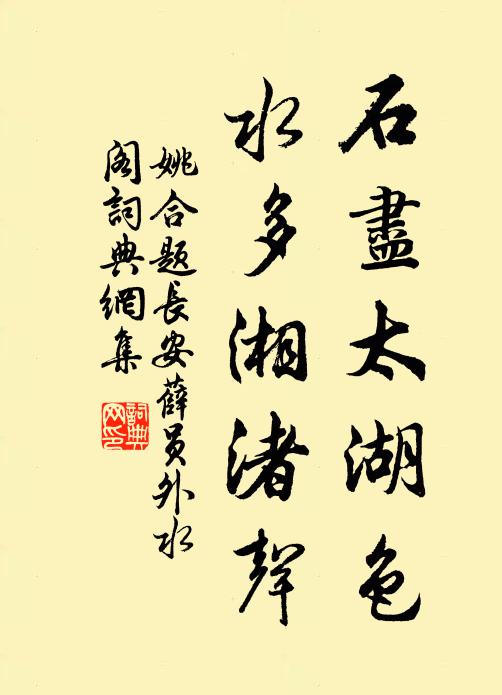 石盡太湖色
水多湘渚聲
姚合題長安薛員外水
閣詞典網集
詞典
网印